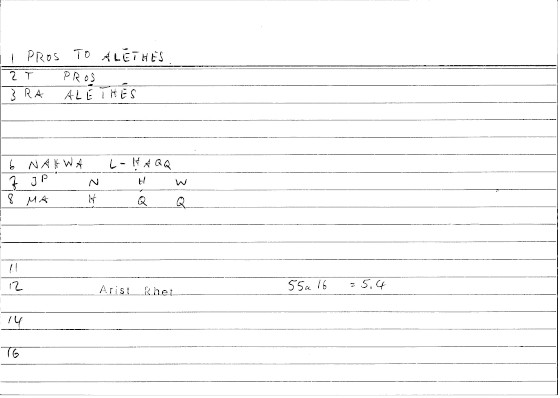 1 PROS TO ALĒTHES
2 T PROS
3 RA ALĒTHĒS
6 NAḤWA L-ḤAQQ
7 JP N Ḥ W
8 MA Ḥ Q Q
11
12 Arist Rhet 55a16 = 5.4
14
16